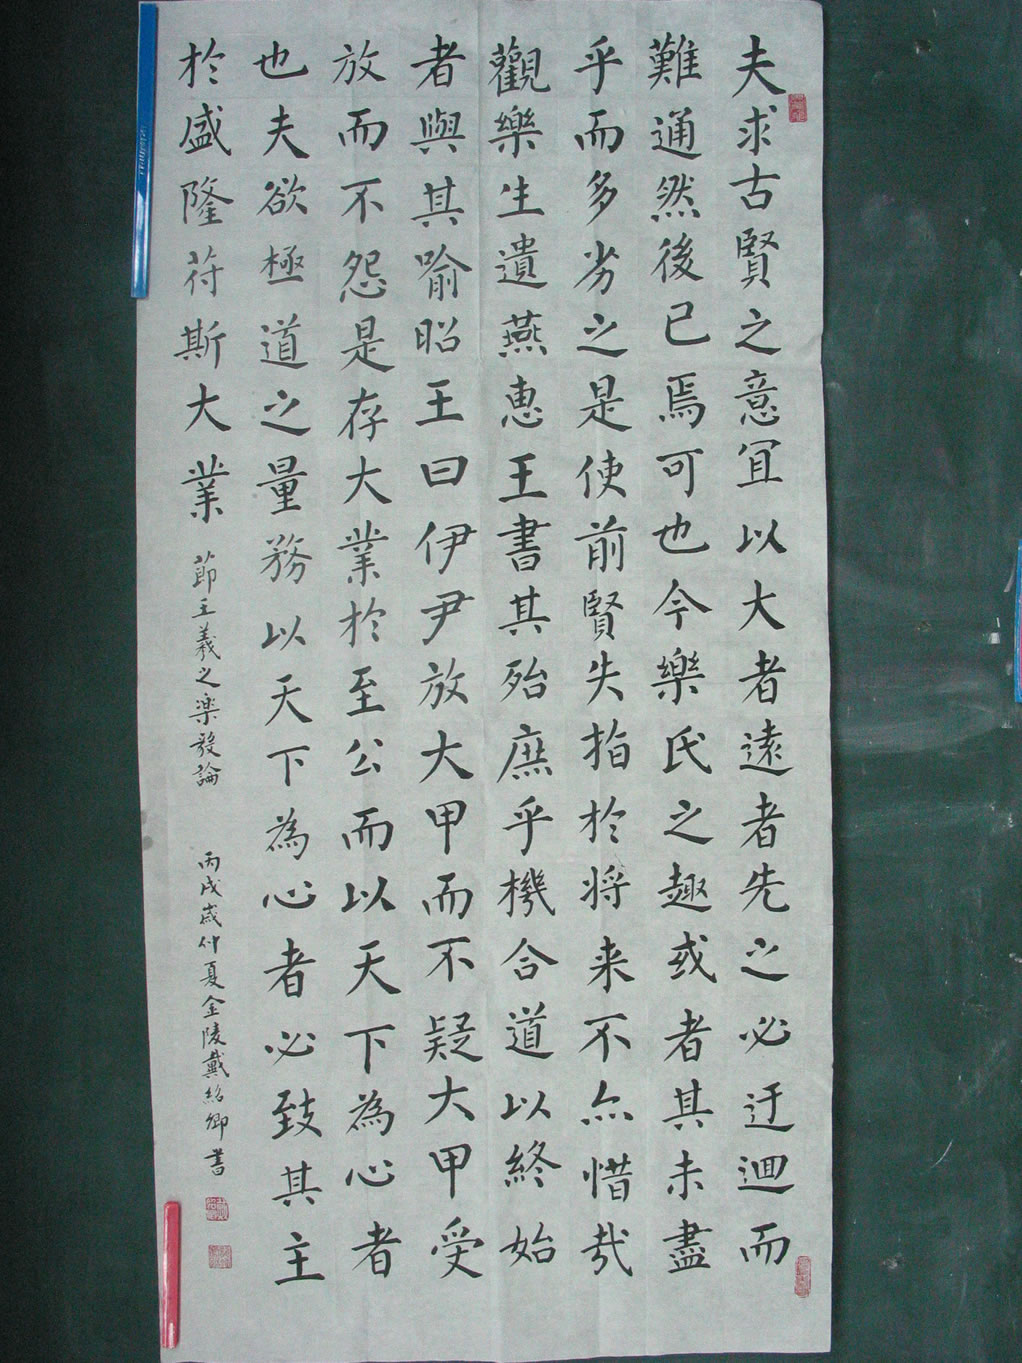 夫求古賢之意宜以大者遠者先之必迂迴而
難通然後已焉可也今樂氏之趣或者其未盡
乎而多劣之是使前賢失指於將来不亦惜哉
觀樂生遺燕惠王書其殆庶乎機合道以終始
者與其喻昭王曰伊尹放大甲而不疑大甲受
放而不怨是存大業於至公而以天下為心者
也夫欲極道之量務以天下為心者必致其主
於盛隆苻斯大業
節王羲之楽毅論
丙戌歲仲夏金陵戴紹卿書